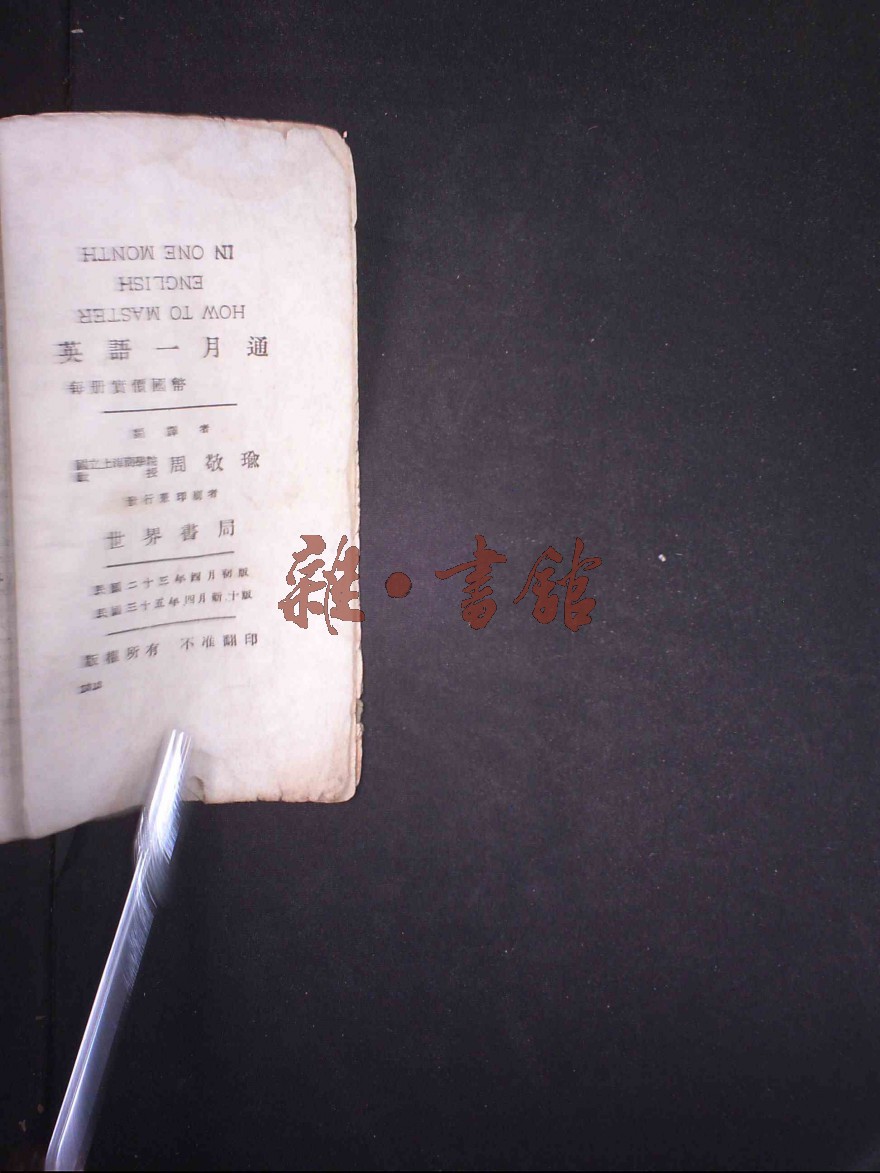 HOW TO MASTER
ENGLISH
IN ONE MONTH
英語一月通
每冊實價國幣
編譯者
周敬瑜
發行兼印刷者
世界書局
民國二十三年四月初版
民國三十五年四月新十版
版權所有 不准翻印
雜·書館